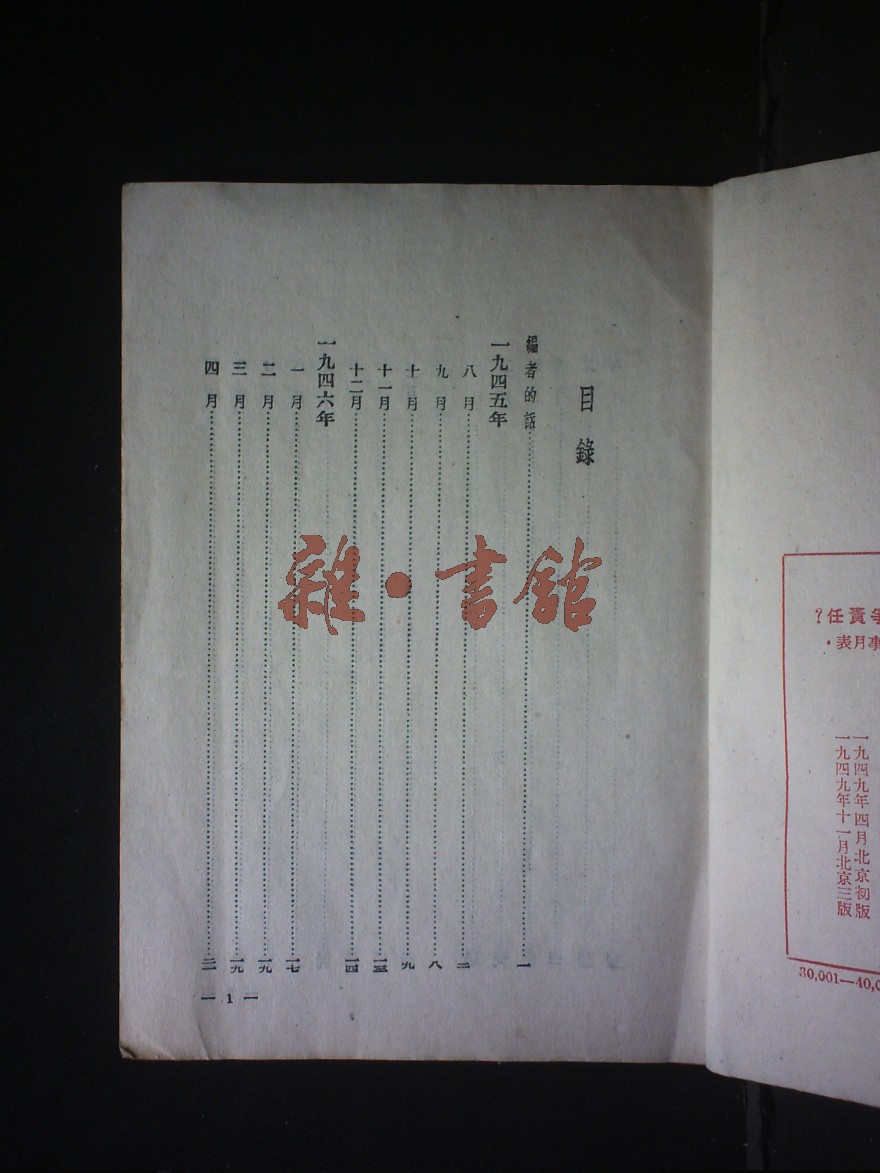 爭責任?
事月表·
一九四九年四月北京初版
一九四九年十一月北京三版
30,001—40,0
目錄
編者的話……一
一九四五年
八月……二
九月……八
十月……九
十一月……一三
十二月……一四
一九四六年
一月……一七
二月……一九
三月……一九
四月……二一
— 1 —
雜·書館